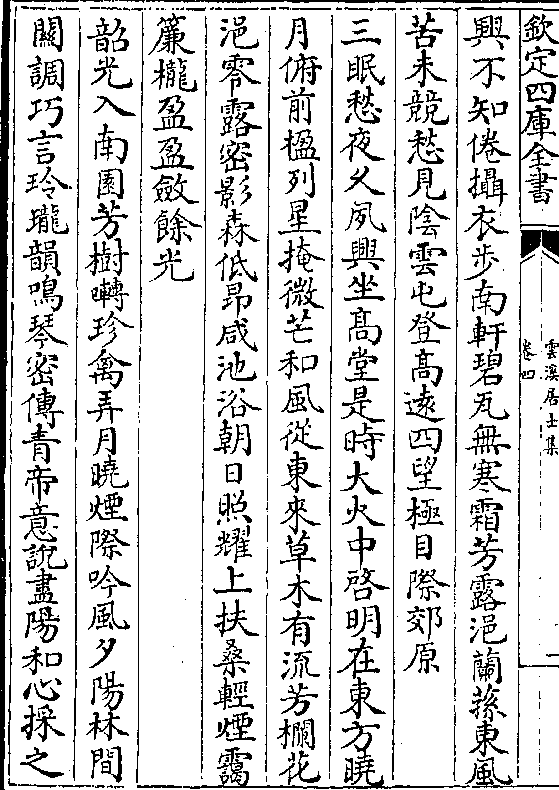 欽定四庫全書
雲溪居士集
卷四
興不知倦攝衣步南軒碧瓦無寒霜芳露浥蘭蓀東風
苦未競愁見陰雲屯登高遠四望極目際郊原
三眠愁夜乆夙興坐髙堂是時大火中啓明在東方曉
月俯前楹列星掩微芒和風從東來草木有流芳欄花
浥零露密影森低昂咸池浴朝日照耀上扶桑輕煙靄
簾櫳盈盈斂餘光
韶光入南園芳樹囀珍禽弄月曉煙際吟風夕陽林間
關調巧言玲瓏韻鳴琴密傳青帝意說盡陽和心採之